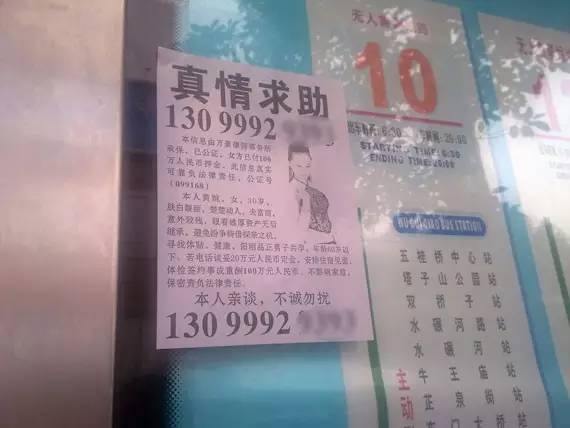 真情求助
130 9992
本信息由万景律师事务所
承保、已公证、女方已付100
万人民币押金、此信息真实
可靠负法律责任、公证号
(099168)
本人黄婉、女、30岁、
肤白靓丽、楚楚动人、夫富商、
意外致残、眼看雄厚资产无后
继承、避免纷争特借探亲之机、
寻找体贴、健康、
男子共孕、年龄60岁以
下、若电话谈妥20万元人民币定金、安排住宿见面、
体检签约事成重酬100万元人民币、不影响家庭、
保密责负法律责任。
本人亲谈,不诚勿扰
130 9992
无人售票
10
6:30
20:00
STARTING TIME:6:30
ENDING TIME:20:00
BUS STATION
五桂桥中心站
塔子山公园站
双桥子站
水碾河路站
水碾河站
牛王庙站
芷泉街站
东门大桥
主动
无人
1